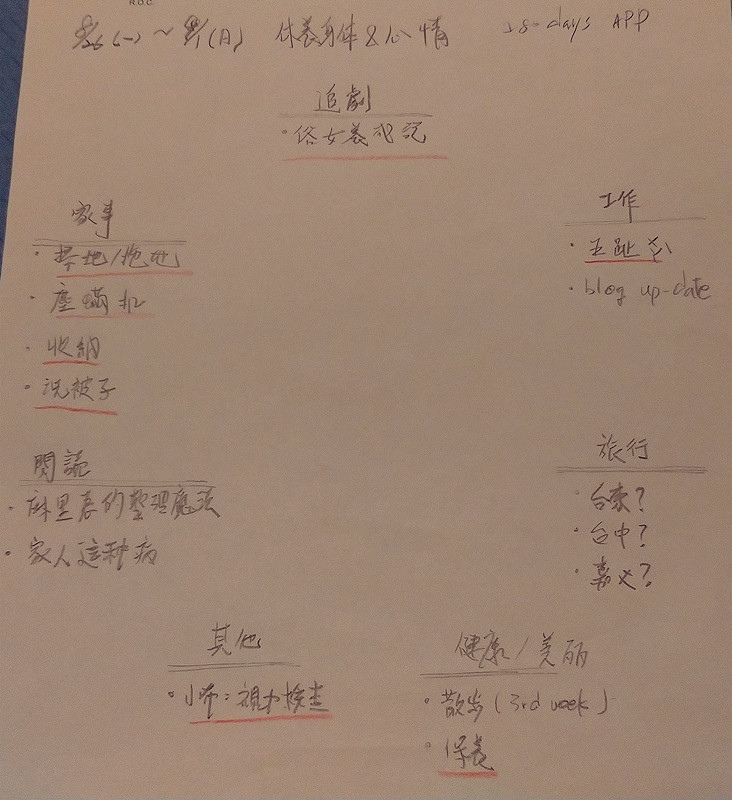 R.O.C
(一) ~ (日) 休養身体&心情
28-days APP
追劇
·俗女養成記
家事
·掃地/拖地
·塵蟎机
·收納
·洗被子
工作
·五趾
·blog up-date
閱読
·麻里惠的整理魔法
·家人這种病
旅行
·台東?
·台中?
·嘉义?
其他
·小布:視力檢查
健康/美丽
·散步(3rd week)
·保養